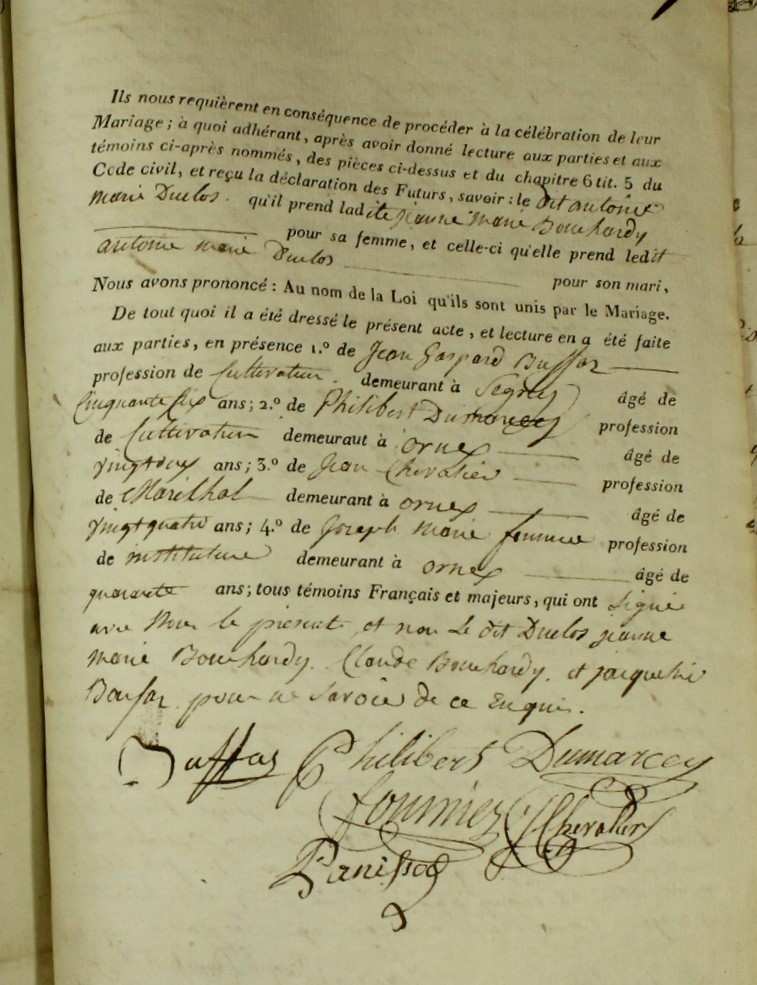 Ils nous requièrent en conséquence de procéder à la célébration de leur
Mariage; à quoi adhérant, après avoir donné lecture aux parties et aux
témoins ci-après nommés, des pièces ci-dessus et du chapitre 6 tit. 5 du
Code civil, et reçu la déclaration des Futurs, savoir: le dit antoine
marie Duclos. qu'il prend ladite jeanne marie Bouchardy
pour sa femme, et celle-ci qu'elle prend ledit
antoine marie Duclos pour son mari,
Nous avons prononcé: Au nom de la Loi qu'ils sont unis par le Mariage.
De tout quoi il a été dressé le présent acte, et lecture en a été faite
aux parties, en présence 1.º de Jean Gaspard Buffaz
profession de Cultivateur. demeurant à Segny âgé de
Cinquante six ans; 2.º de Philibert Dumarcey profession
de Cultivateur demeuraut à ornex âgé de
vingt deux ans; 3.º de Jean Chevalier profession
de Maréchal demeurant à ornex âgé de
vingt quatre ans; 4.º de Joseph marie fournier profession
de instituteur demeurant à ornex âgé de
quarante ans; tous témoins Français et majeurs, qui ont signé
avec Nous le présent, et non le dit Duclos jeanne
marie Bouchardy. Claude Bouchardy. et jacqueline
pour ne savoir de ce Enquis.
Buffas Philibert Dumarcey
fournier J Chevalier
Panissod